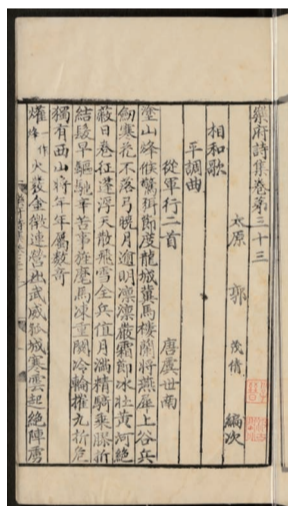 樂府詩集卷第三十三
太原 郭 茂倩 編次
相和歌
平調曲
從軍行二首 唐虞世南
塗山烽候驚弭節度龍城冀馬樓蘭將燕犀上谷兵
劒寒花不落弓曉月逾明凜凜嚴霜節冰壯黃河絶
蔽日卷征蓬浮天散飛雪全兵值月滿精騎乘膠折
結髮早驅馳辛苦事旌麾馬凍重關冷輪摧九折危
獨有西山將年年屬數奇
爟一作烽火發金徽連營出武威孤城寒雲起絶陣虜